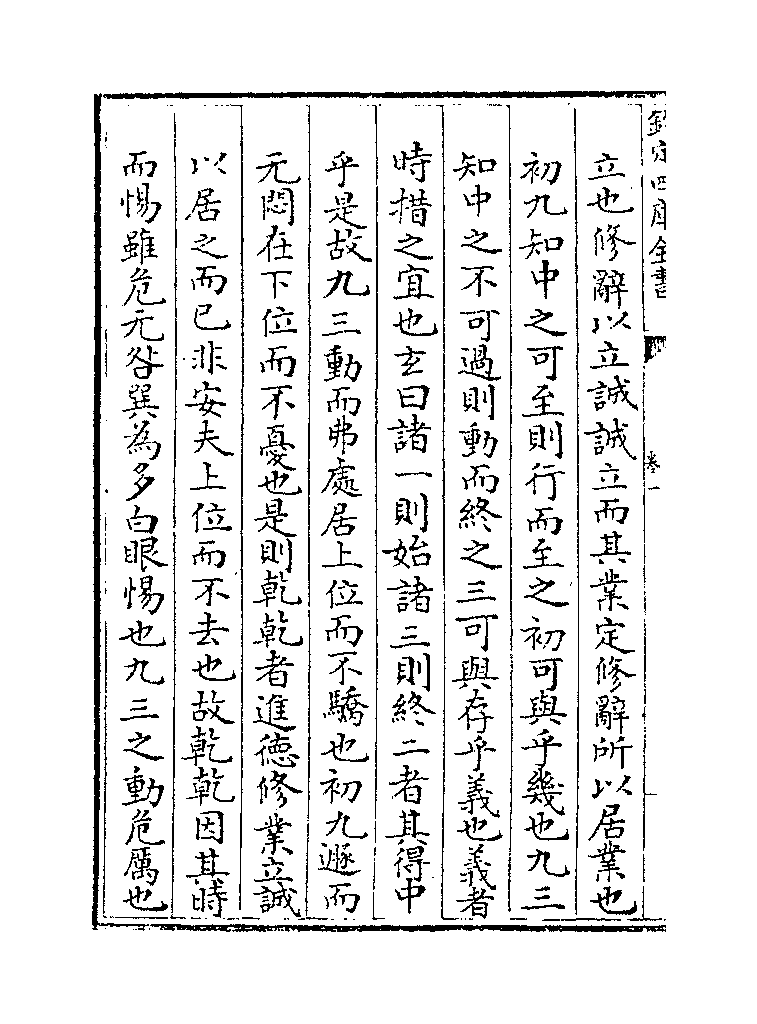 欽定四庫全書
卷一
立也修辭以立誠誠立而其業定修辭所以居業也
初九知中之可至則行而至之初可與乎幾也九三
知中之不可過則動而終之三可與存乎義也義者
時措之宜也玄曰諸一則始諸三則終二者其得中
乎是故九三動而弗處居上位而不驕也初九遯而
无悶在下位而不憂也是則乾乾者進德修業立誠
以居之而已非安夫上位而不去也故乾乾因其時
而惕雖危无咎巽為多白眼惕也九三之動危厲也